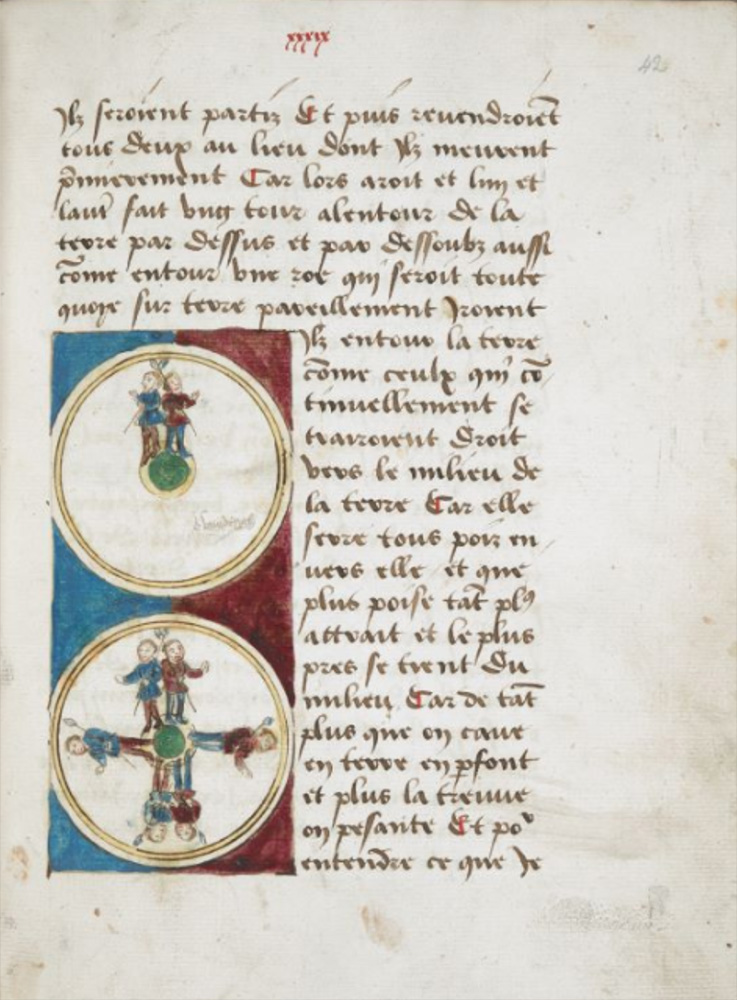 xxxix
42
Ilz seroient partiz Et puis revendroiēt
tous deux au lieu dont Ilz meuvent
p̄mierement Car lors aroit et lun et
lautr̄ fait vng tour alentour de la
terre par dessus et par dessoubz aussi
cōme entour vne roe qui seroit toute
quoye sur terre pareillement Iroient
Ilz entour la terre
cōme ceulx qui cō
tinuellement se
trairoient droit
vers le milieu de
la terre Car elle
serre tous poiz en
uers elle et que
plus poise tāt plꝰ
attrait et le plus
pres se tient du
milieu Car de tāt
plus que on caue
en terre en ꝑfont
et plus la treuue
on pesante Et poʳ
entendre ce que Ie